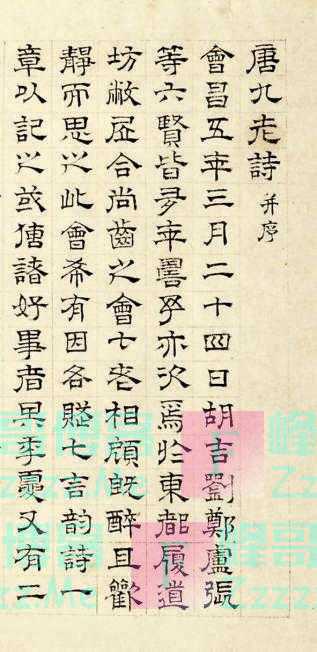 唐九老詩 并序
會昌五年三月二十四日胡吉劉鄭盧張
等六賢皆多年壽予亦次焉於東都履道
坊敝居合尚齒之會七老相顧既醉且歡
靜而思之此會希有因各賦七言韵詩一
章以記之或傳諸好事者其年夏又有二